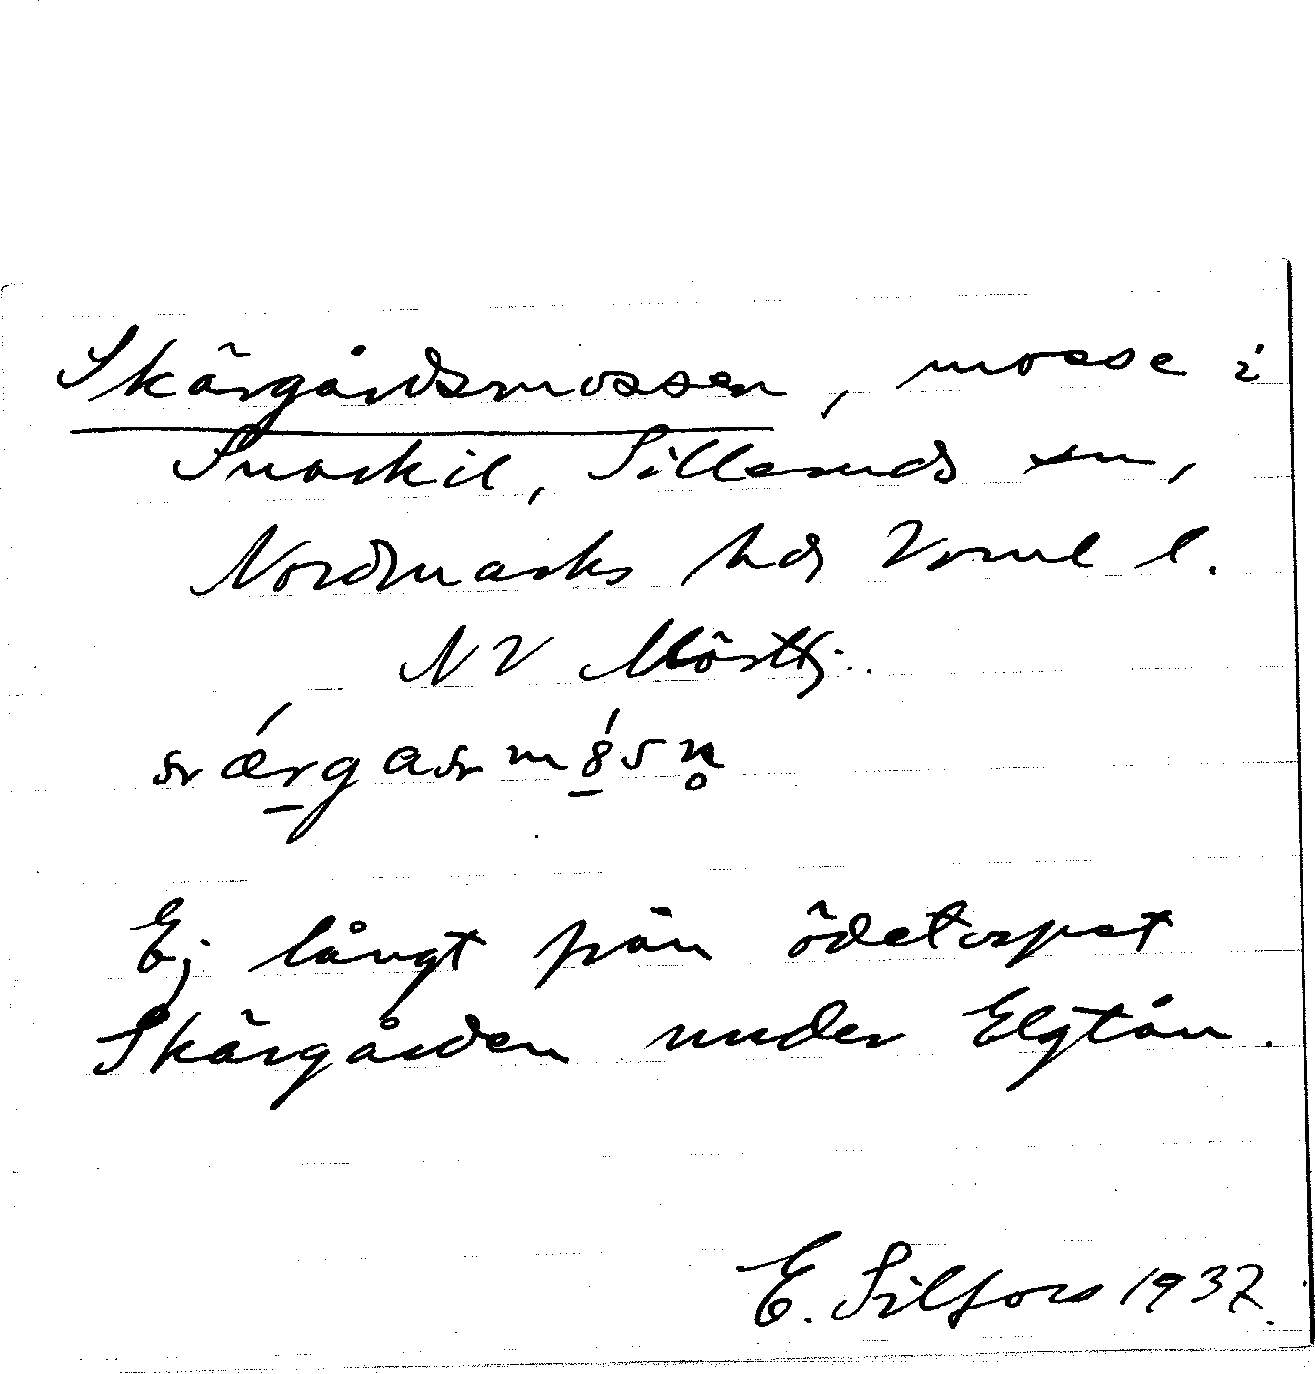 Skärgårdsmossen, mosse i
Snarkil, Silleruds sn,
Nordmarks hd, Värml l.
NV
Ej långt från ödetorpet
Skärgården under Elgtån.
E. Silfors 1937.